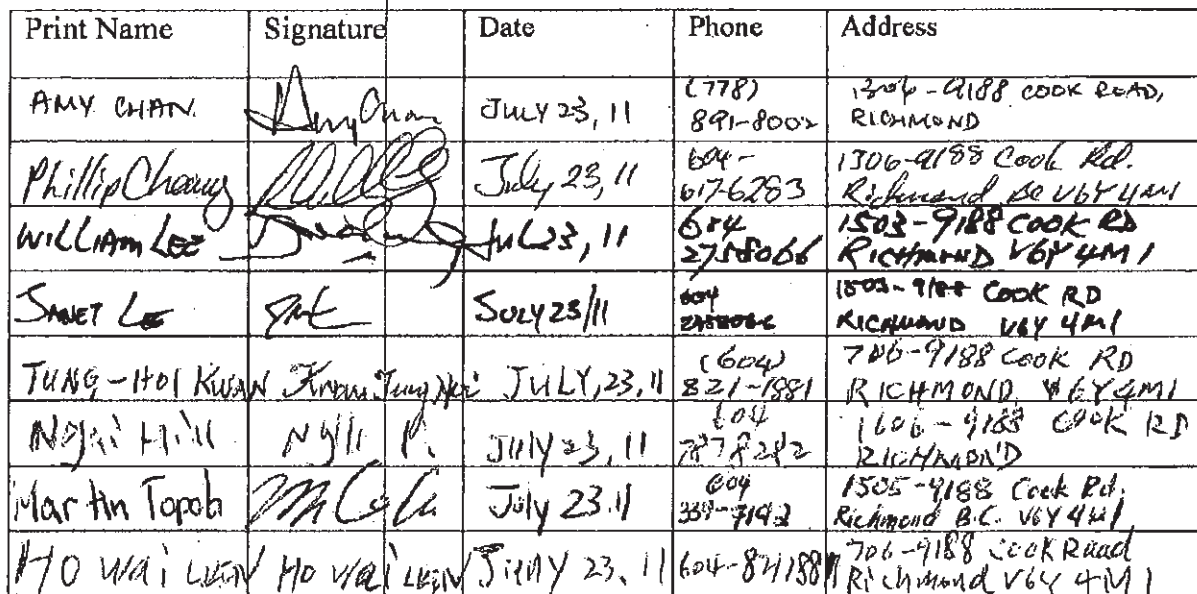 Print Name Signature Date Phone Address
AMY CHAN. Amy Chan JULY 23, 11 (778) 891-8002 1306-9188 COOK ROAD, RICHMOND
Phillip Cheung July 23, 11 604-617-6283 1306-9188 Cook Rd. Richmond BC V6Y 4M1
WILLIAM LEE JUL 23, 11 604 2758066 1503-9188 COOK RD RICHMOND V6Y 4M1
JANET LEE JULY 23/11 604 1503-9188 COOK RD RICHMOND V6Y 4M1
TUNG-HOI KWAN Kwan Tung Hoi JULY, 23, 11 (604) 821-1881 706-9188 COOK RD RICHMOND V6Y4M1
July 23, 11 604 7878282 1606-9188 COOK RD RICHMOND
Martin July 23.11 604 1505-9188 Cook Rd, Richmond B.C. V6Y 4M1
HO WAI LUEN HO WAI LUEN JULY 23, 11 604-8211881 706-9188 COOK Road Richmond V6Y 4M1